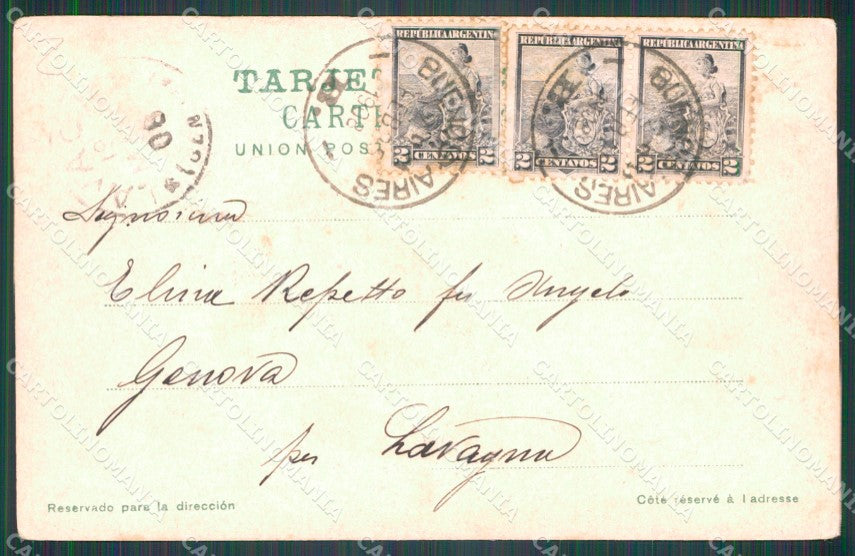 TARJE
CARTI
UNION POS
REPÚBLICA ARGENTINA
2 CENTAVOS 2
REPÚBLICA ARGENTINA
2 CENTAVOS 2
REPÚBLICA ARGENTINA
2 CENTAVOS 2
BUENOS AIRES
BUENOS AIRES
06
Signorina
Elina Repetto fu Angelo
Genova
per Lavagna
Reservado para la dirección
Côte réservé à l adresse
CARTOLINOMANIA